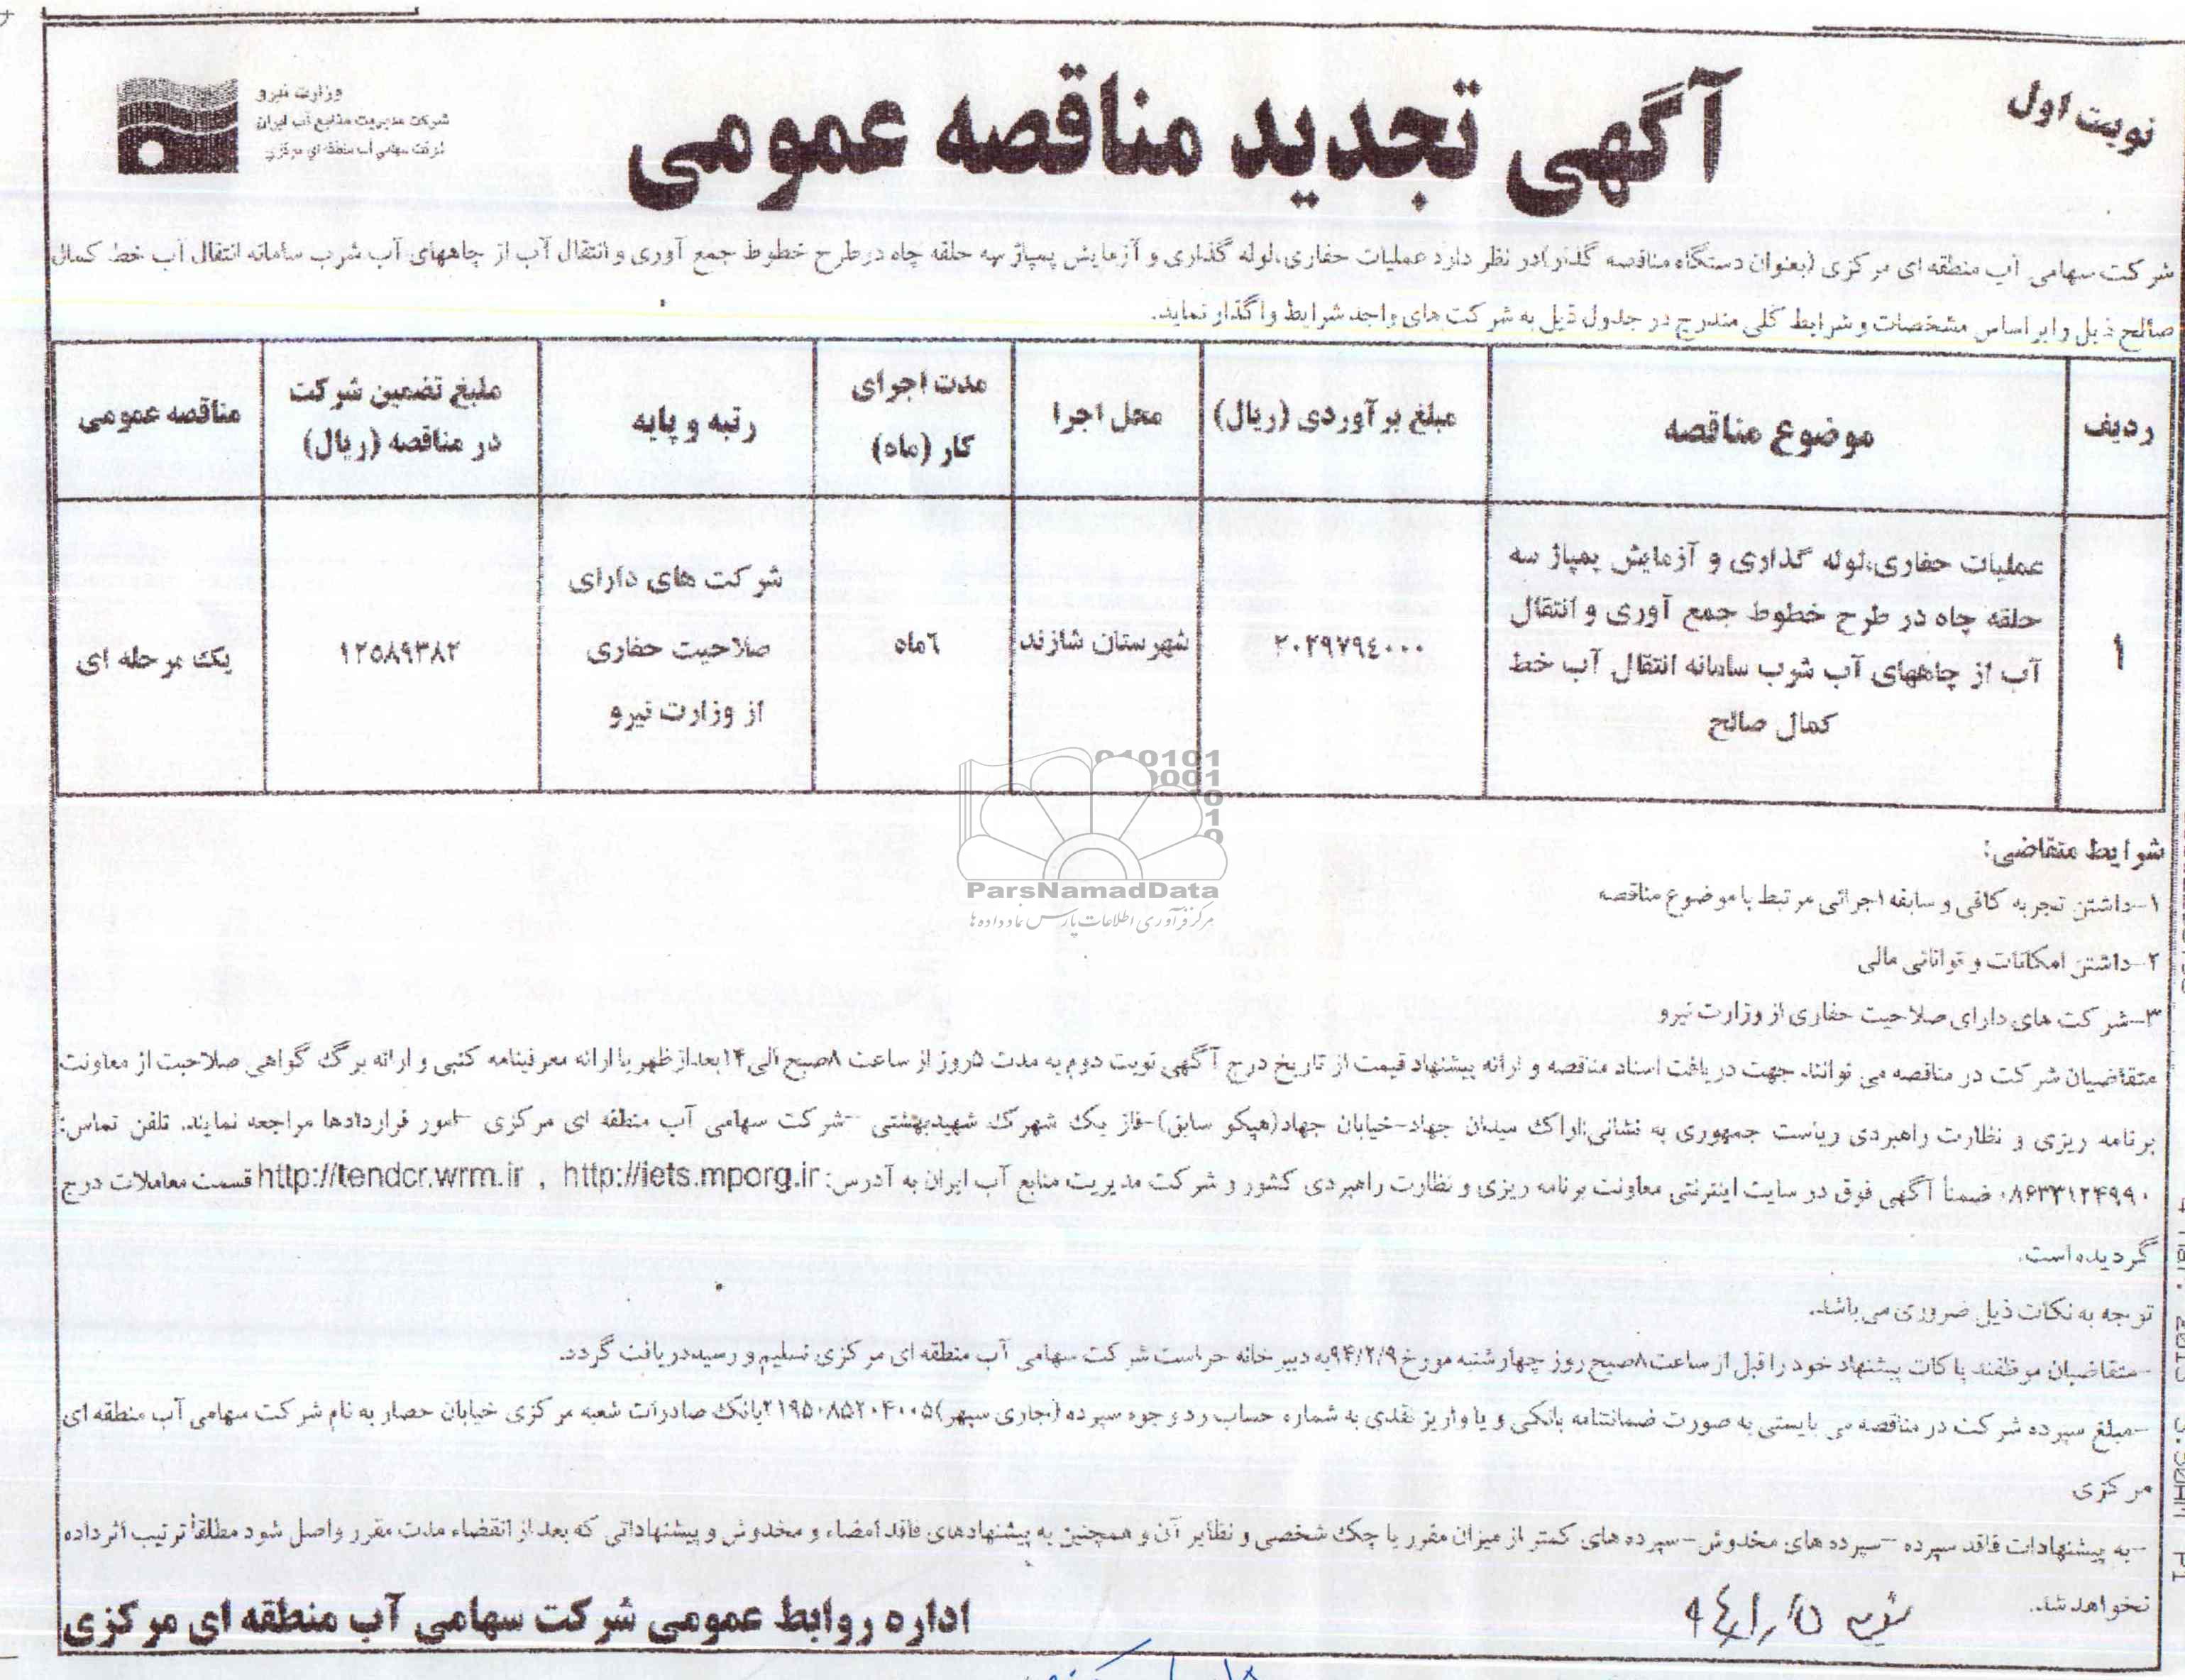 نوبت اول
آگهی تجدید مناقصه عمومی
وزارت نیرو
شرکت مدیریت منابع آب ایران
شرکت سهامی آب منطقه ای مرکزی
شرکت سهامی آب منطقه ای مرکزی (بعنوان دستگاه مناقصه گذار)در نظر دارد عملیات حفاری،لوله گذاری و آزمایش پمپاژ سه حلقه چاه درطرح خطوط جمع آوری و انتقال آب از چاههای آب شرب سامانه انتقال آب خط کمال
صالح ذیل را بر اساس مشخصات و شرایط کلی مندرج در جدول ذیل به شرکت های واجد شرایط واگذار نماید.
ردیف
موضوع مناقصه
مبلغ برآوردی (ریال)
محل اجرا
مدت اجرای
کار (ماه)
رتبه و پایه
مبلغ تضمین شرکت
در مناقصه (ریال)
مناقصه عمومی
۱
عملیات حفاری،لوله گذاری و آزمایش پمپاژ سه
حلقه چاه در طرح خطوط جمع آوری و انتقال
آب از چاههای آب شرب سامانه انتقال آب خط
کمال صالح
۲۰۲۹۷۹٤۰۰۰
شهرستان شازند
٦ماه
شرکت های دارای
صلاحیت حفاری
از وزارت نیرو
۱۲۵۸۹۳۸۲
یک مرحله ای
010101
0001
ParsNamadData
مرکز فرآوری اطلاعات پارس نماد داده ها
شرایط متقاضی:
۱-داشتن تجربه کافی و سابقه اجرائی مرتبط با موضوع مناقصه
۲-داشتن امکانات و توانائی مالی
۳-شرکت های دارای صلاحیت حفاری از وزارت نیرو
متقاضیان شرکت در مناقصه می توانند جهت دریافت اسناد مناقصه و ارائه پیشنهاد قیمت از تاریخ درج آگهی نوبت دوم به مدت ۵روز از ساعت ۸صبح الی ۱۴بعدازظهر با ارائه معرفینامه کتبی و ارائه برگ گواهی صلاحیت از معاونت
برنامه ریزی و نظارت راهبردی ریاست جمهوری به نشانی:اراک میدان جهاد-خیابان جهاد(هپکو سابق)-فاز یک شهرک شهیدبهشتی -شرکت سهامی آب منطقه ای مرکزی -امور قراردادها مراجعه نمایند. تلفن تماس:
۰۸۶۳۳۱۲۴۹۹۰ ضمناً آگهی فوق در سایت اینترنتی معاونت برنامه ریزی و نظارت راهبردی کشور و شرکت مدیریت منابع آب ایران به آدرس: http://iets.mporg.ir , http://tendcr.wrm.ir قسمت معاملات درج
گردیده است.
توجه به نکات ذیل ضروری می باشد.
-متقاضیان موظفند پاکات پیشنهاد خود را قبل از ساعت ۸صبح روز چهارشنبه مورخ ۹۴/۲/۹به دبیرخانه حراست شرکت سهامی آب منطقه ای مرکزی تسلیم و رسید دریافت گردد.
-مبلغ سپرده شرکت در مناقصه می بایستی به صورت ضمانتنامه بانکی و یا واریز نقدی به شماره حساب رد وجوه سپرده (جاری سپهر)۲۱۹۵۰۸۵۲۰۴۰۰۵بانک صادرات شعبه مرکزی خیابان حصار به نام شرکت سهامی آب منطقه ای
مرکزی
-به پیشنهادات فاقد سپرده -سپرده های مخدوش-سپرده های کمتر از میزان مقرر یا چک شخصی و نظایر آن و همچنین به پیشنهادهای فاقد امضاء و مخدوش و پیشنهاداتی که بعد از انقضاء مدت مقرر واصل شود مطلقاً ترتیب اثر داده
نخواهد شد.
اداره روابط عمومی شرکت سهامی آب منطقه ای مرکزی